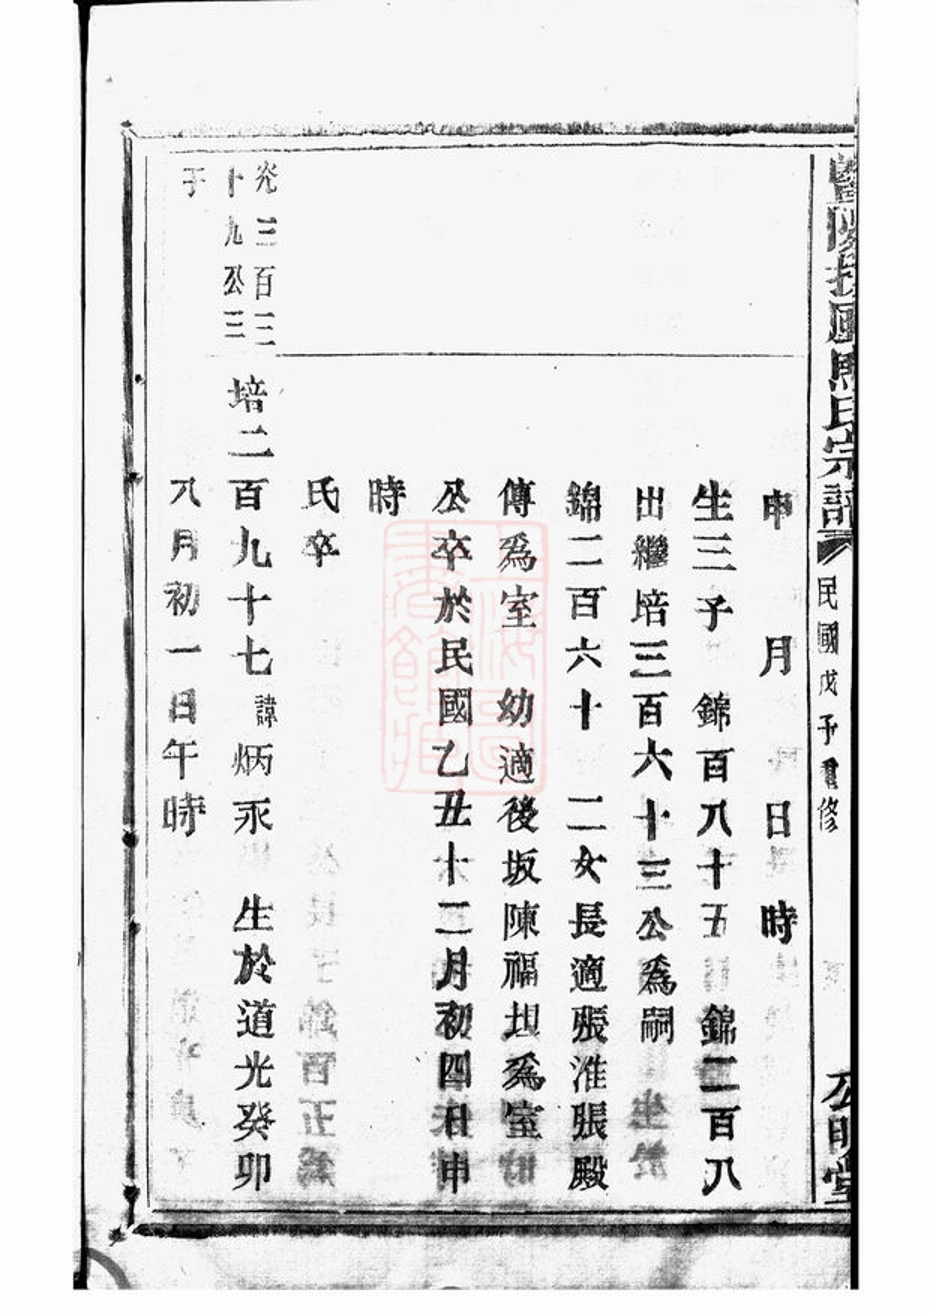 暨陽扶風馬氏宗譜 民國戊子重修 公明堂
申 月 日 時
生三子 錦百八十五 錦二百八
出繼培三百六十三公爲嗣
錦二百六十 二女長適張淮張殿
傳爲室 幼適後坂陳福坦爲室
公卒於民國乙丑十二月初四日申
時
氏卒
光三百三
十九公三
子
培二百九十七 諱炳汞 生於道光癸卯
八月初一日午時